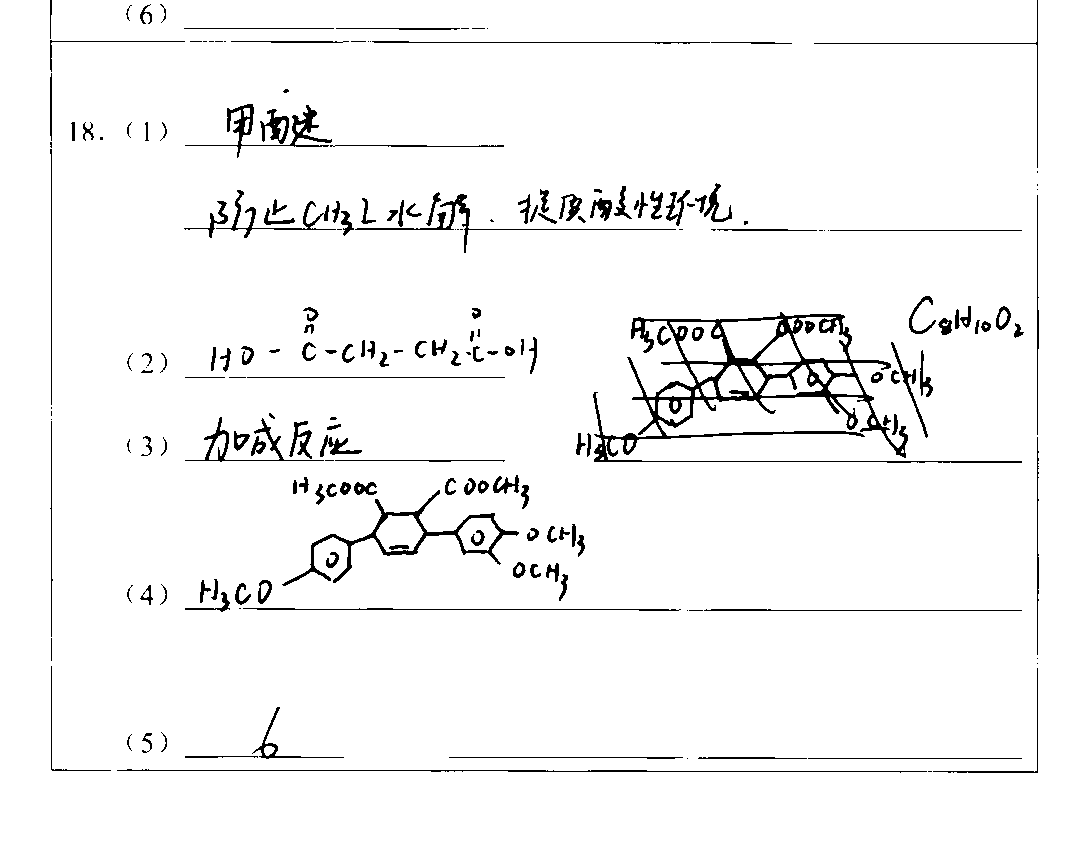 (6)
18. (1) 甲
防止CH3I水解. 提供酸性环境.
O O
(2) HO-C-CH2-CH2-C-OH
C8H10O2
H3COOC COOCH3
OCH3
OCH3
H3CO
(3) 加成反应
H3COOC COOCH3
OCH3
OCH3
(4) H3CO
(5) 6